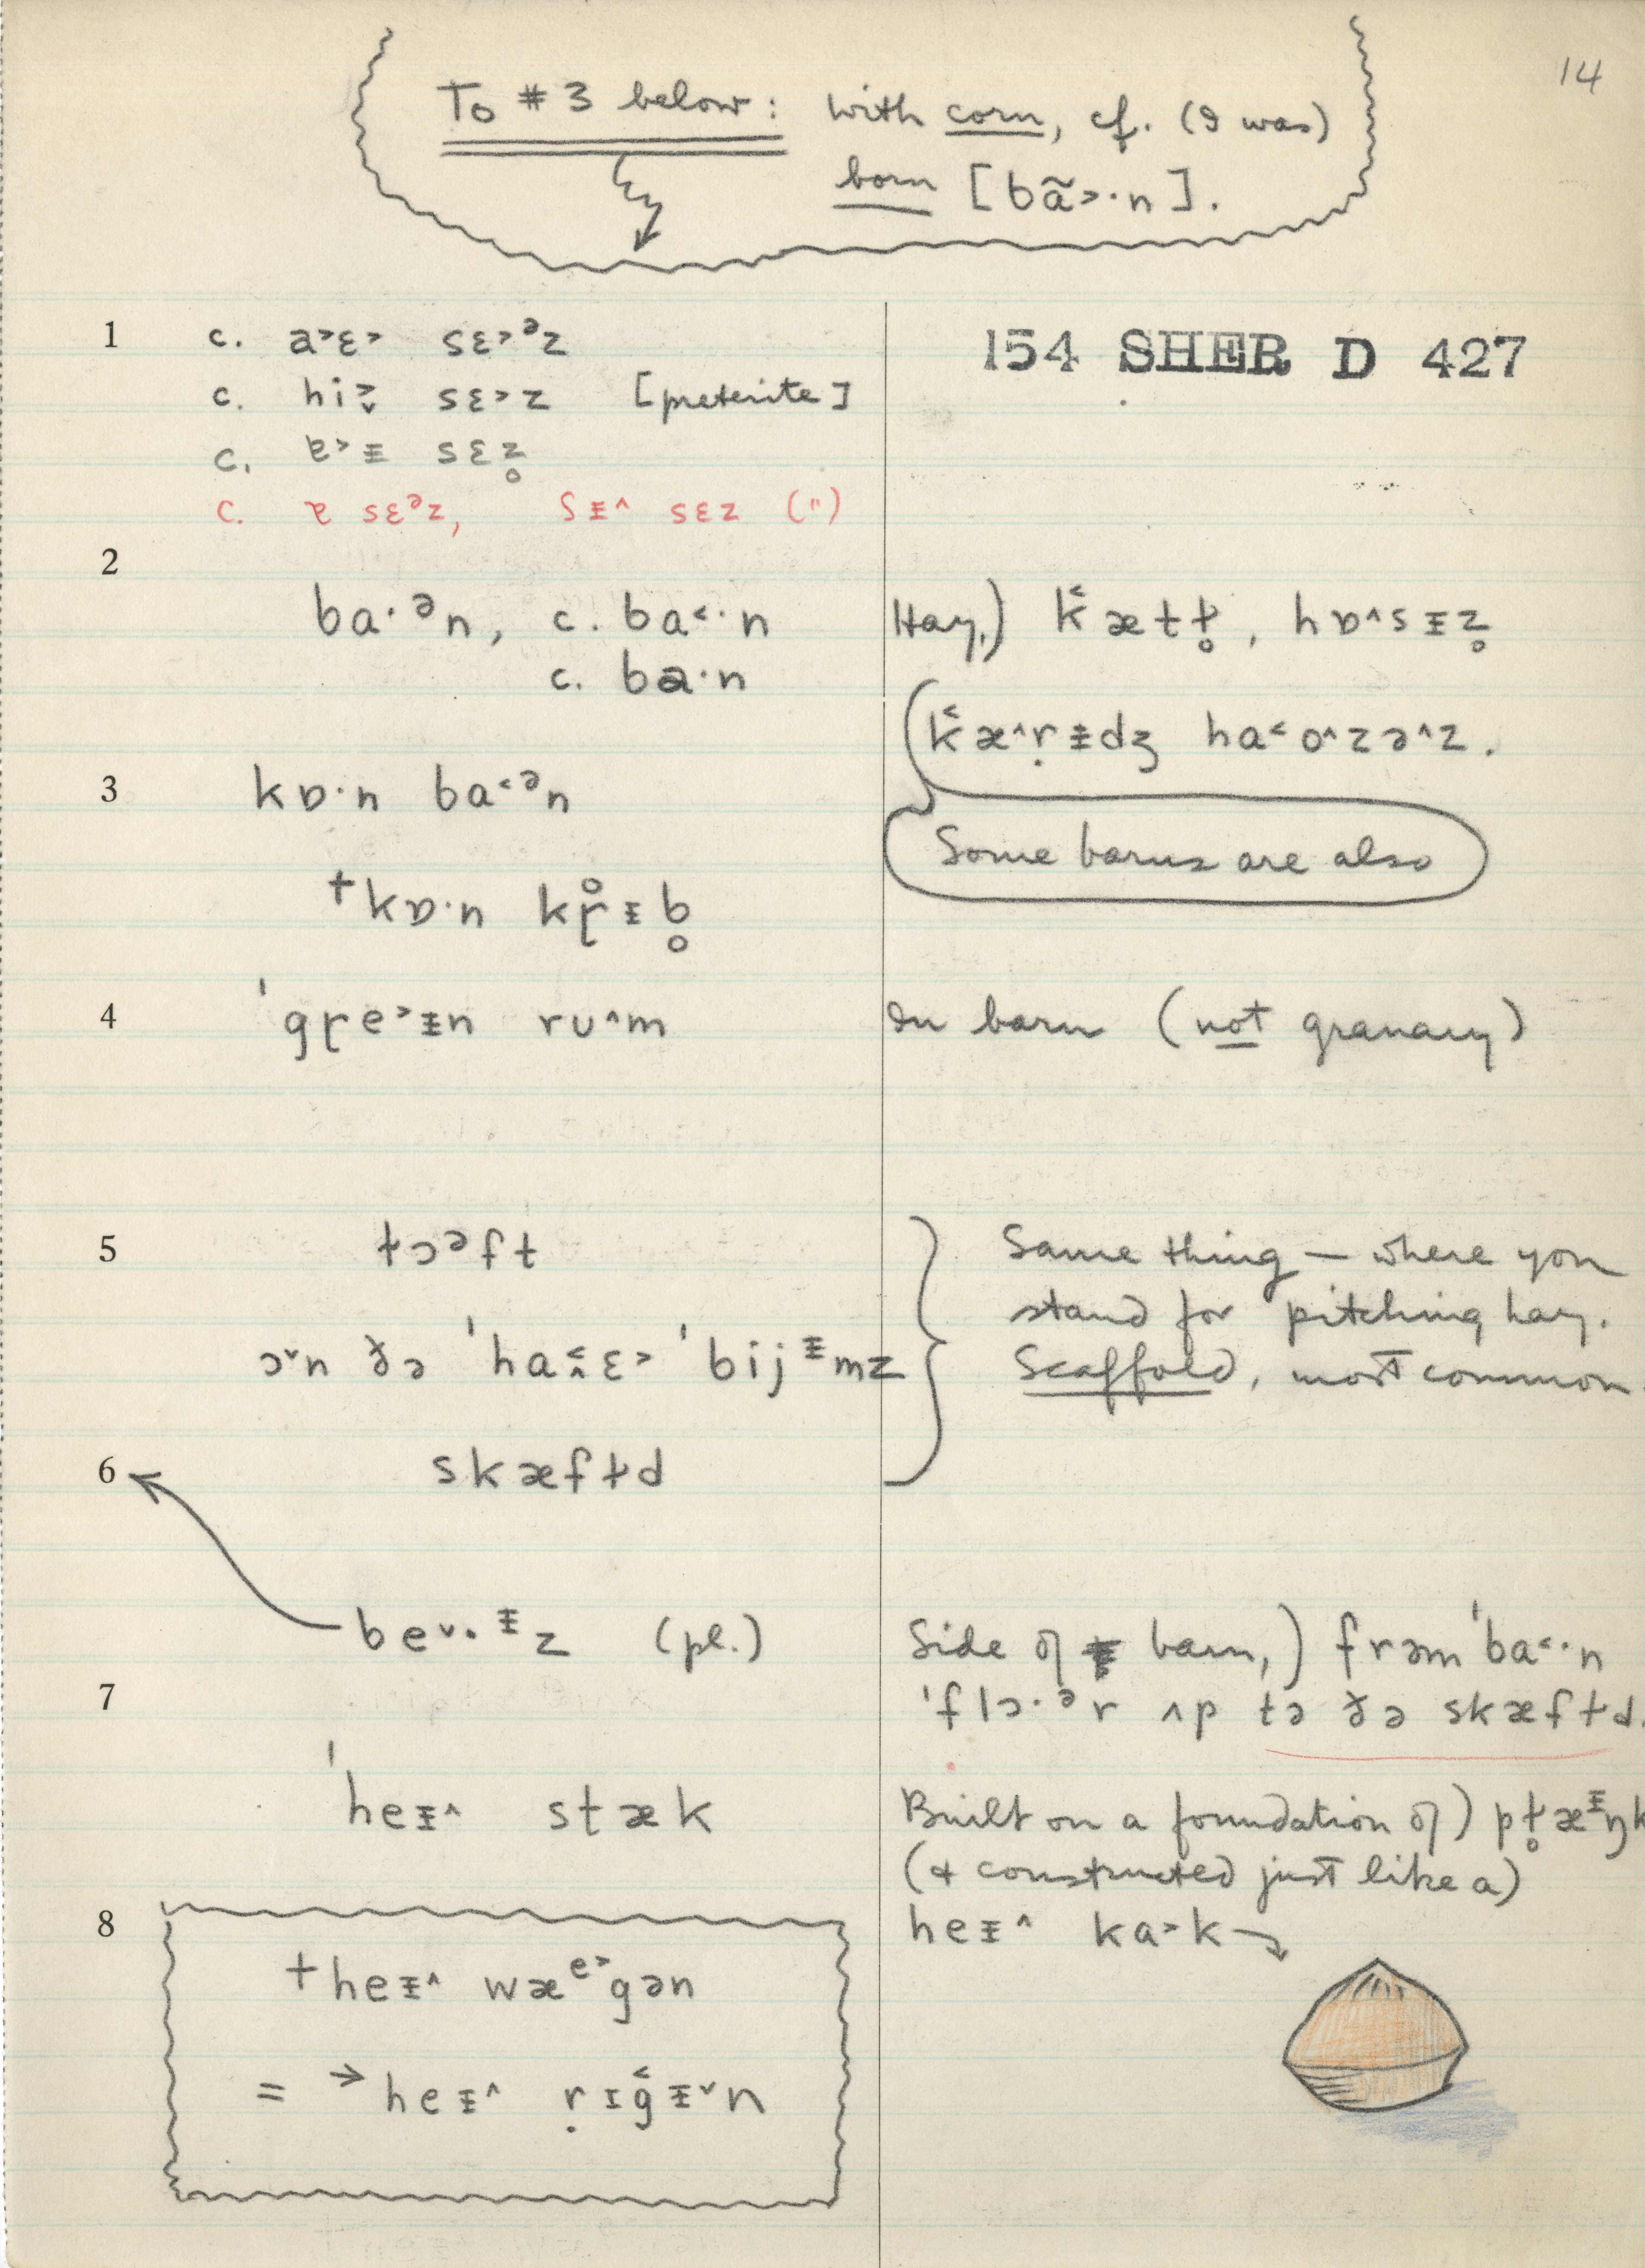 14
To # 3 below: with corn, cf. (I was)
born [bã˃·n].
1 c. a˃ɛ˃ sɛ˃ᵊz
154 SHER D 427
c. hi˃̬ sɛ˃z [preterite]
c. ɐ˃ᵻ sɛz̥
c. ɐ sɛᵊz, ʃᵻ˄ sɛz (")
2
ba·ᵊn, c. ba˂·n
c. ba·n
Hay,) k̑ætɫ̥, hɒ˄sᵻz̥
(k̑æ˄ṛᵻdʒ ha˂o˄zə˄z.
Some barns are also
3 kɒ·n ba˂ᵊn
+kɒ·n kɽ̊ᵻb̥
4 'gɽe˃ᵻn rʊ˄m
In barn (not granary)
5 ɫɔᵊft
ɔ˅n ðə 'ha˂̭ɛ˃ 'bijᵻmz
6 skæfɫd
Same thing – where you
stand for pitching hay.
Scaffold, most common.
be˅·ᵻz (pl.)
Side of barn,) frəm 'ba˂·n
7
'flɔ·ᵊr ʌp tə ðə skæfɫd.
'heᵻ˄ stæk
Built on a foundation of) pɫ̥æᵻŋk
(& constructed just like a)
heᵻ˄ ka˃k →
8
+heᵻ˄ wæᵉ˃gən
= →heᵻ˄ ṛɪg̑ᵻ˅n